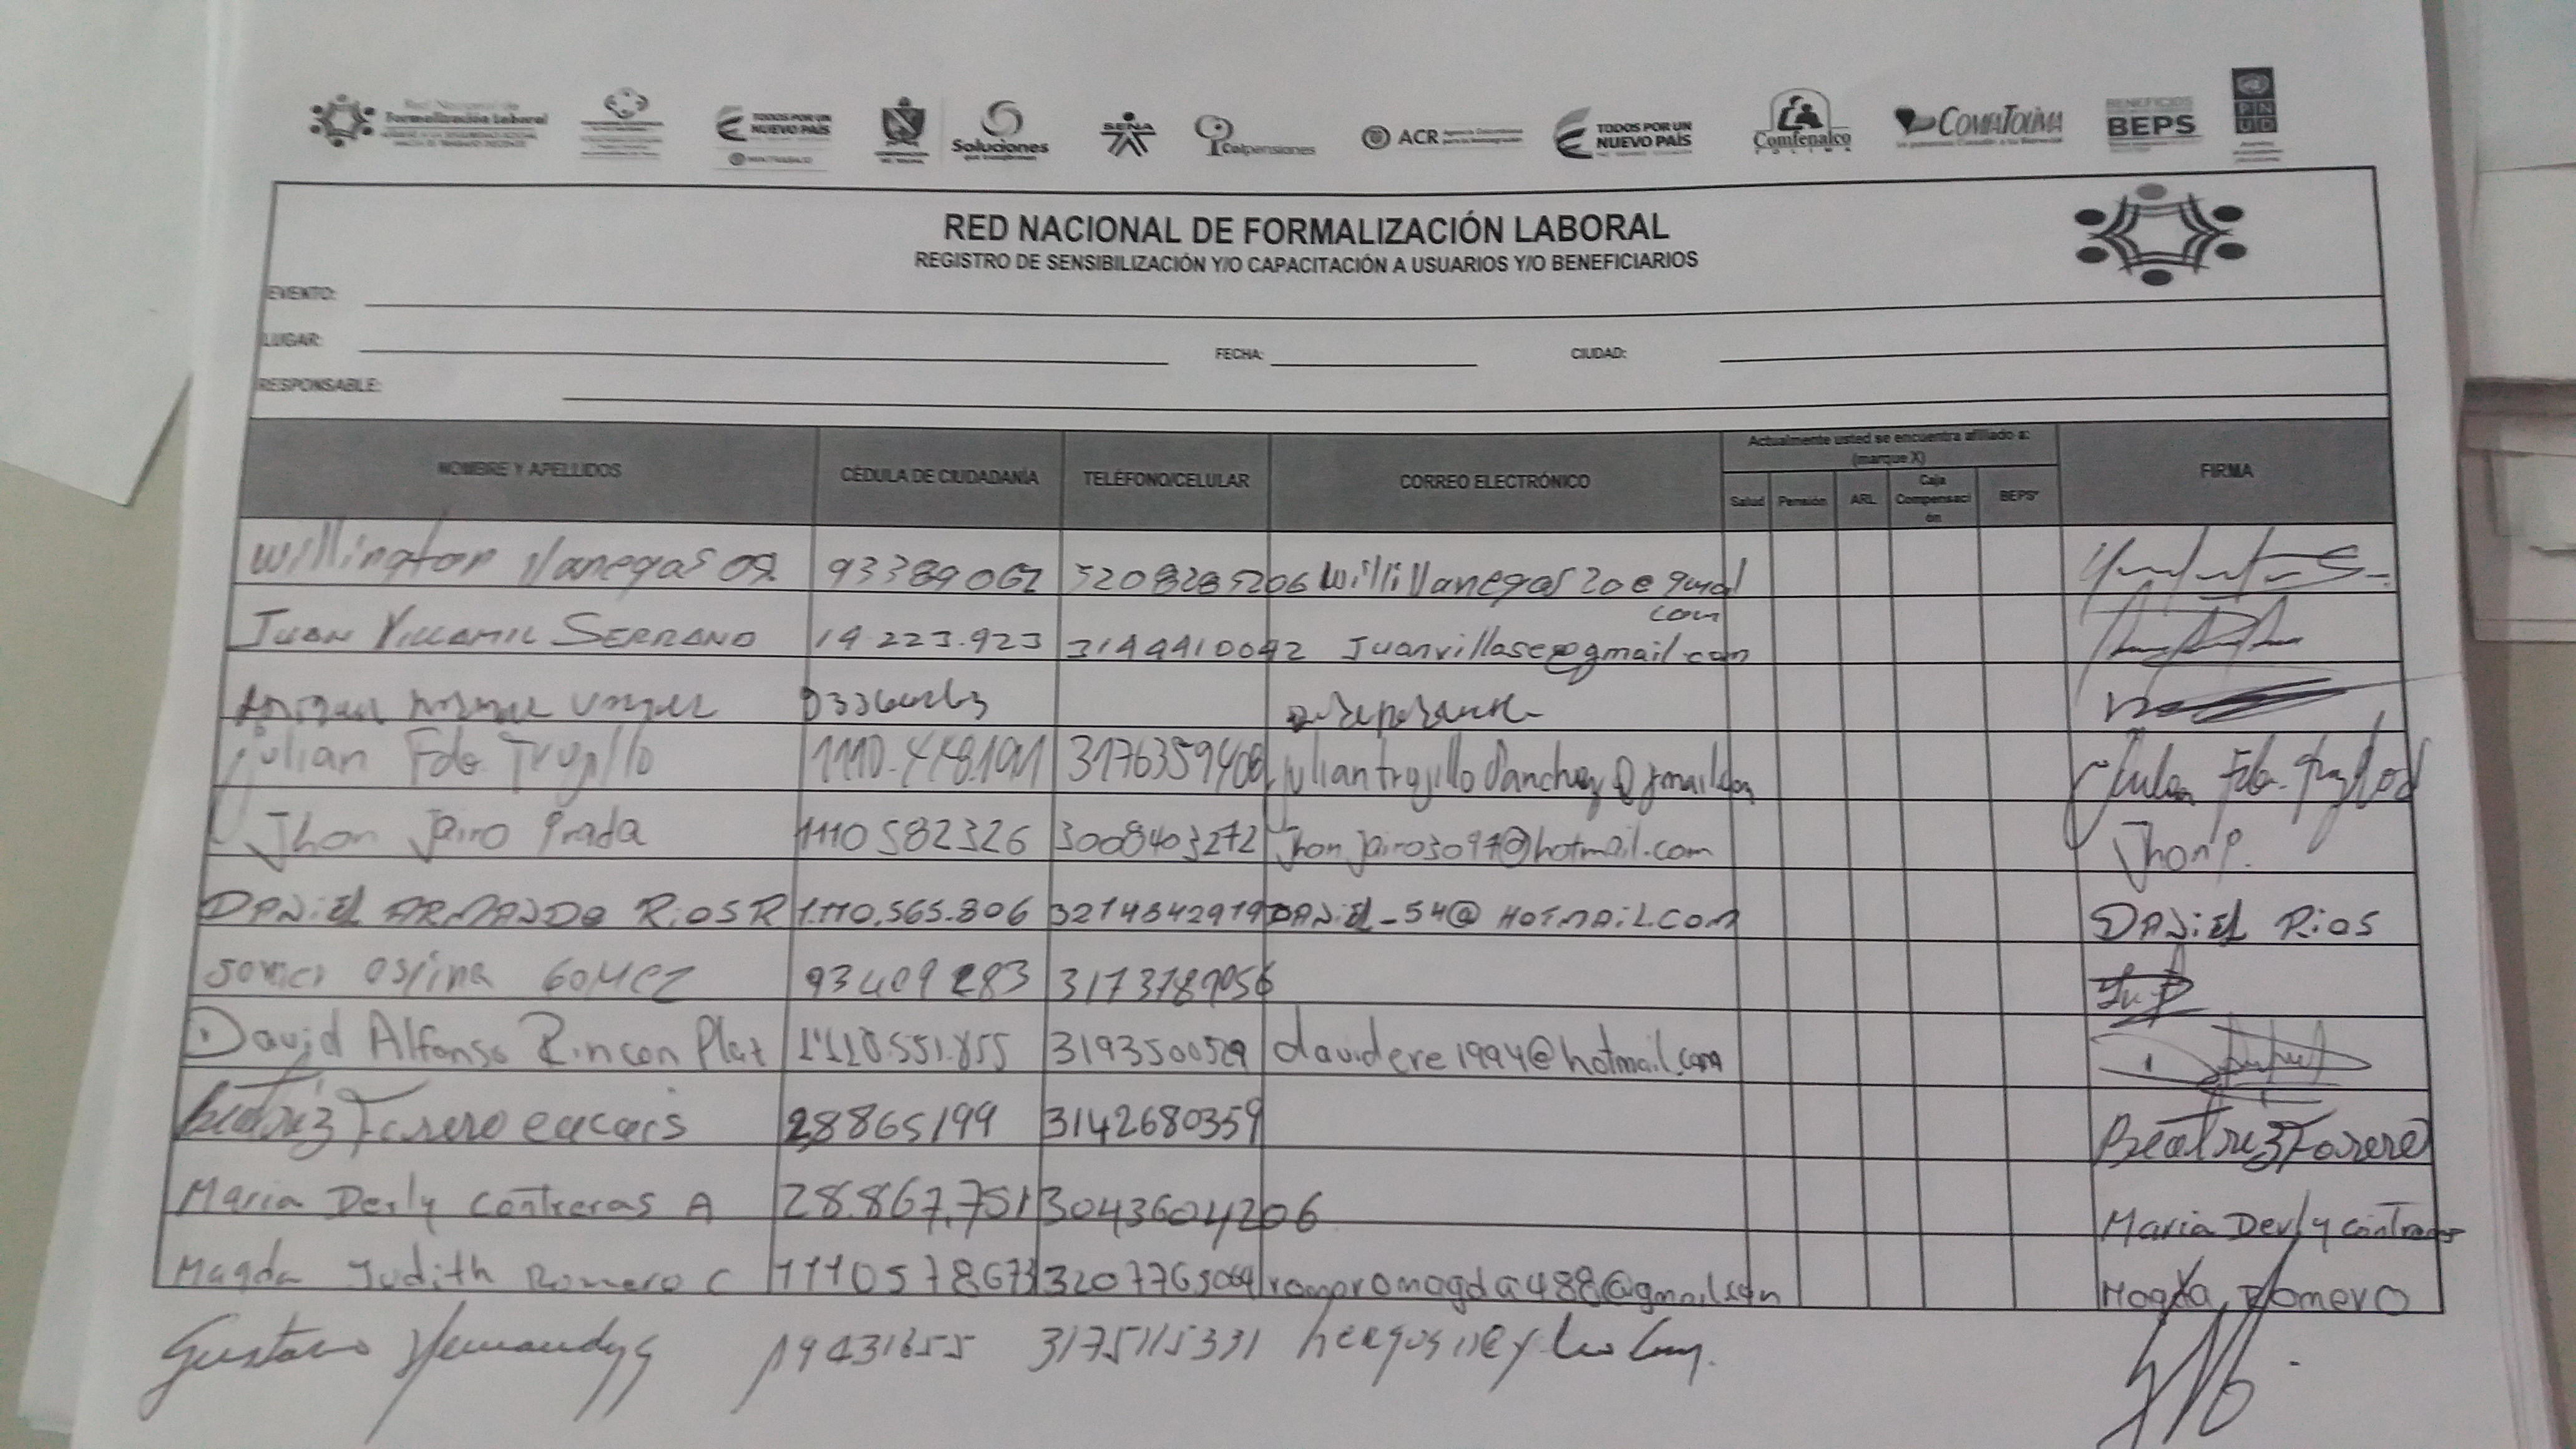 Red Nacional de Formalización Laboral
TODOS POR UN NUEVO PAÍS
MINTRABAJO
Soluciones que transforman
SENA
Colpensiones
ACR
TODOS POR UN NUEVO PAÍS
Comfenalco TOLIMA
COMFATOLIMA
BENEFICIOS BEPS
PNUD
RED NACIONAL DE FORMALIZACIÓN LABORAL
REGISTRO DE SENSIBILIZACIÓN Y/O CAPACITACIÓN A USUARIOS Y/O BENEFICIARIOS
EVENTO:
LUGAR: FECHA: CIUDAD:
RESPONSABLE:
NOMBRE Y APELLIDOS CÉDULA DE CIUDADANÍA TELÉFONO/CELULAR CORREO ELECTRÓNICO Actualmente usted se encuentra afiliado a: (marque X) FIRMA
Salud Pensión ARL Caja Compensación BEPS*
Willington Vanegas 93389062 3208285206 Willillanegas20@gmail
com
JUAN VILLAMIL SERRANO 14.223.923 3144410042 Juanvillase@gmail.com
Julian Fdo. Trujillo 3176359408 juliantrujilloSanchez@gmail.com
Jhon Jairo Prada 1110582326 3008403272 Jhonjairo3097@hotmail.com Jhon P.
DANiEL ARMANDO RiOS R 1.110.565.806 3214842919 DANiEL-54@HOTMAiL.COM DANiEL RiOS
ospina GOMEZ 93409283
David Alfonso Rincon Plat 1'110.551.855 3193500529 davidere1994@hotmail.com
Beatriz Forero 28865199 3142680359 Beatriz Forero
Maria Derly Contreras A 28.867.751 3043604206 Maria Derly Contreras
Magda Judith Romero C 1110578673 3207765064 Magda Romero
Gustavo Hernandez 3175115331